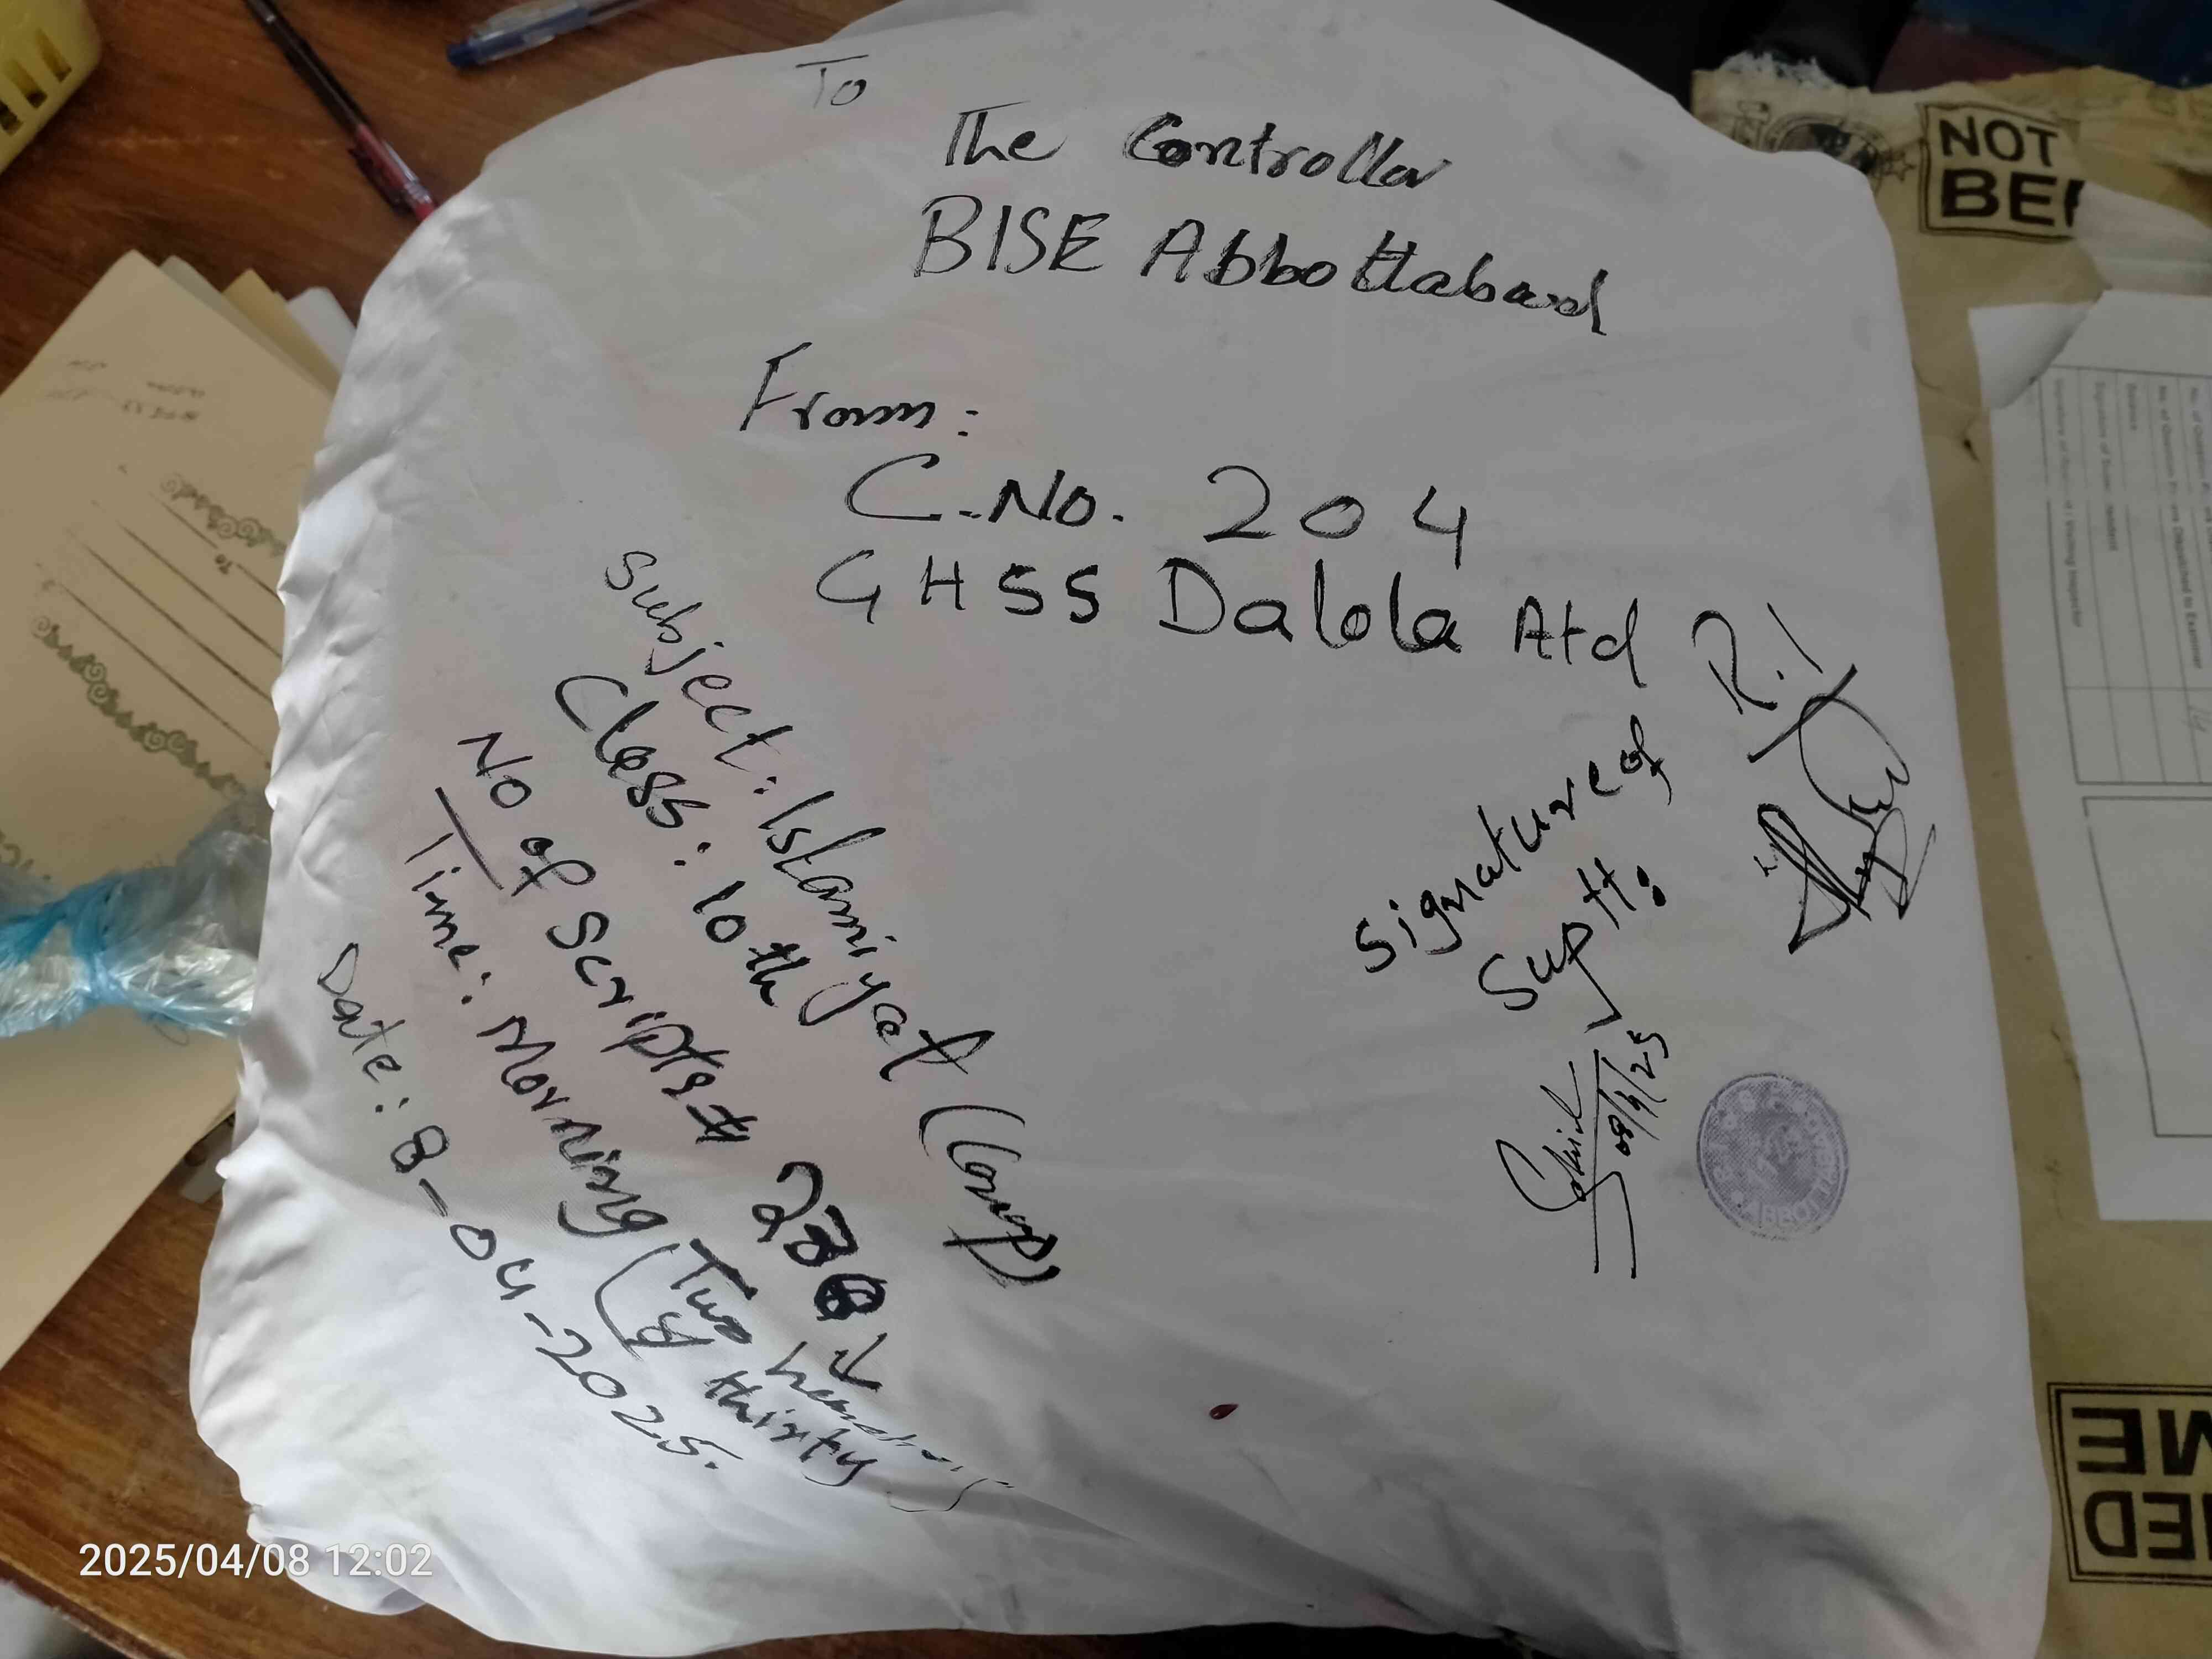 To
The Controller
BISE Abbottabad
From:
C.No. 204
GHSS Dalola Atd
Subject: Islamiyat (Comp)
Class: 10th
No of Scripts# 230
(Two hundred
& thirty)
Time: Morning
Date: 8-04-2025.
R.I
Signature of
Suptt:
08/4/25
NOT
BE
ME
IED
2025/04/08 12:02